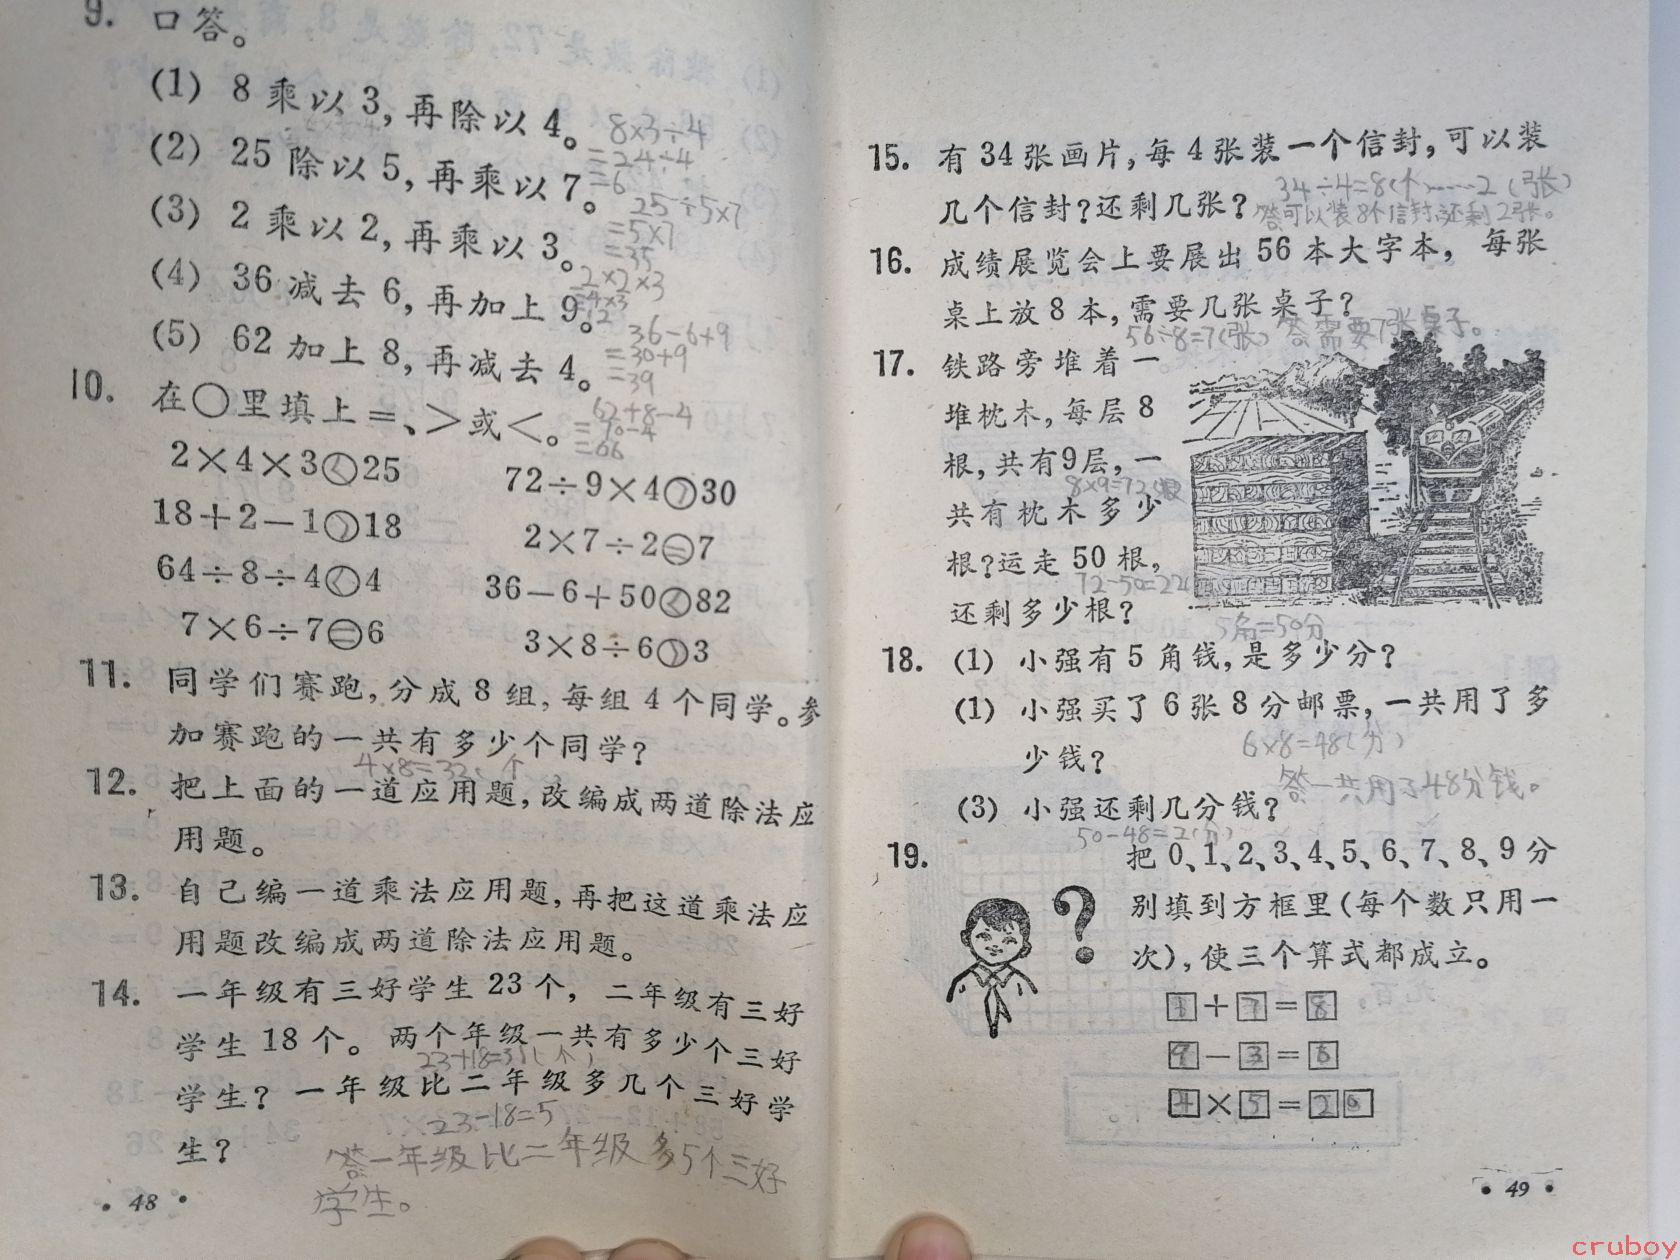 9. 口答。
(1) 8 乘以 3,再除以 4。 8×3÷4
=24÷4
=6
(2) 25 除以 5,再乘以 7。 25÷5×7
=5×7
=35
(3) 2 乘以 2,再乘以 3。 2×2×3
=4×3
=12
(4) 36 减去 6,再加上 9。 36-6+9
=30+9
=39
(5) 62 加上 8,再减去 4。 62+8-4
=70-4
=66
10. 在○里填上=、>或<。
2×4×3<25 72÷9×4>30
18+2-1>18 2×7÷2=7
64÷8÷4<4 36-6+50<82
7×6÷7=6 3×8÷6>3
11. 同学们赛跑,分成 8 组,每组 4 个同学。参
加赛跑的一共有多少个同学?
4×8=32(个
12. 把上面的一道应用题,改编成两道除法应
用题。
13. 自己编一道乘法应用题,再把这道乘法应
用题改编成两道除法应用题。
14. 一年级有三好学生 23 个, 二年级有三好
学生 18 个。 两个年级一共有多少个三好
23+18=31(个)
学生? 一年级比二年级多几个三好学
生? 23-18=5
答一年级比二年级多5个三好
学生。
• 48 •
15. 有 34 张画片,每 4 张装一个信封,可以装
34÷4=8(个)……2(张)
几个信封?还剩几张? 答可以装8个信封还剩2张。
16. 成绩展览会上要展出 56 本大字本, 每张
桌上放 8 本,需要几张桌子?
56÷8=7(张) 答需要7张桌子。
17. 铁路旁堆着一
堆枕木,每层 8
根,共有9层,一
8×9=72(根
共有枕木多少
根?运走 50 根,
72-50=22(
还剩多少根?
5角=50分
18. (1) 小强有 5 角钱,是多少分?
(1) 小强买了 6 张 8 分邮票,一共用了多
少钱? 6×8=48(分)
答一共用了48分钱。
(3) 小强还剩几分钱?
50-48=2(分)
19. 把 0、1、2、3、4、5、6、7、8、9 分
别填到方框里(每个数只用一
次),使三个算式都成立。
?
1+7=8
9-3=6
4×5=20
• 49 •
cruboy